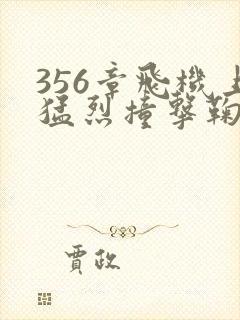 356章飛機上
猛烈撞擊鞠
賈政